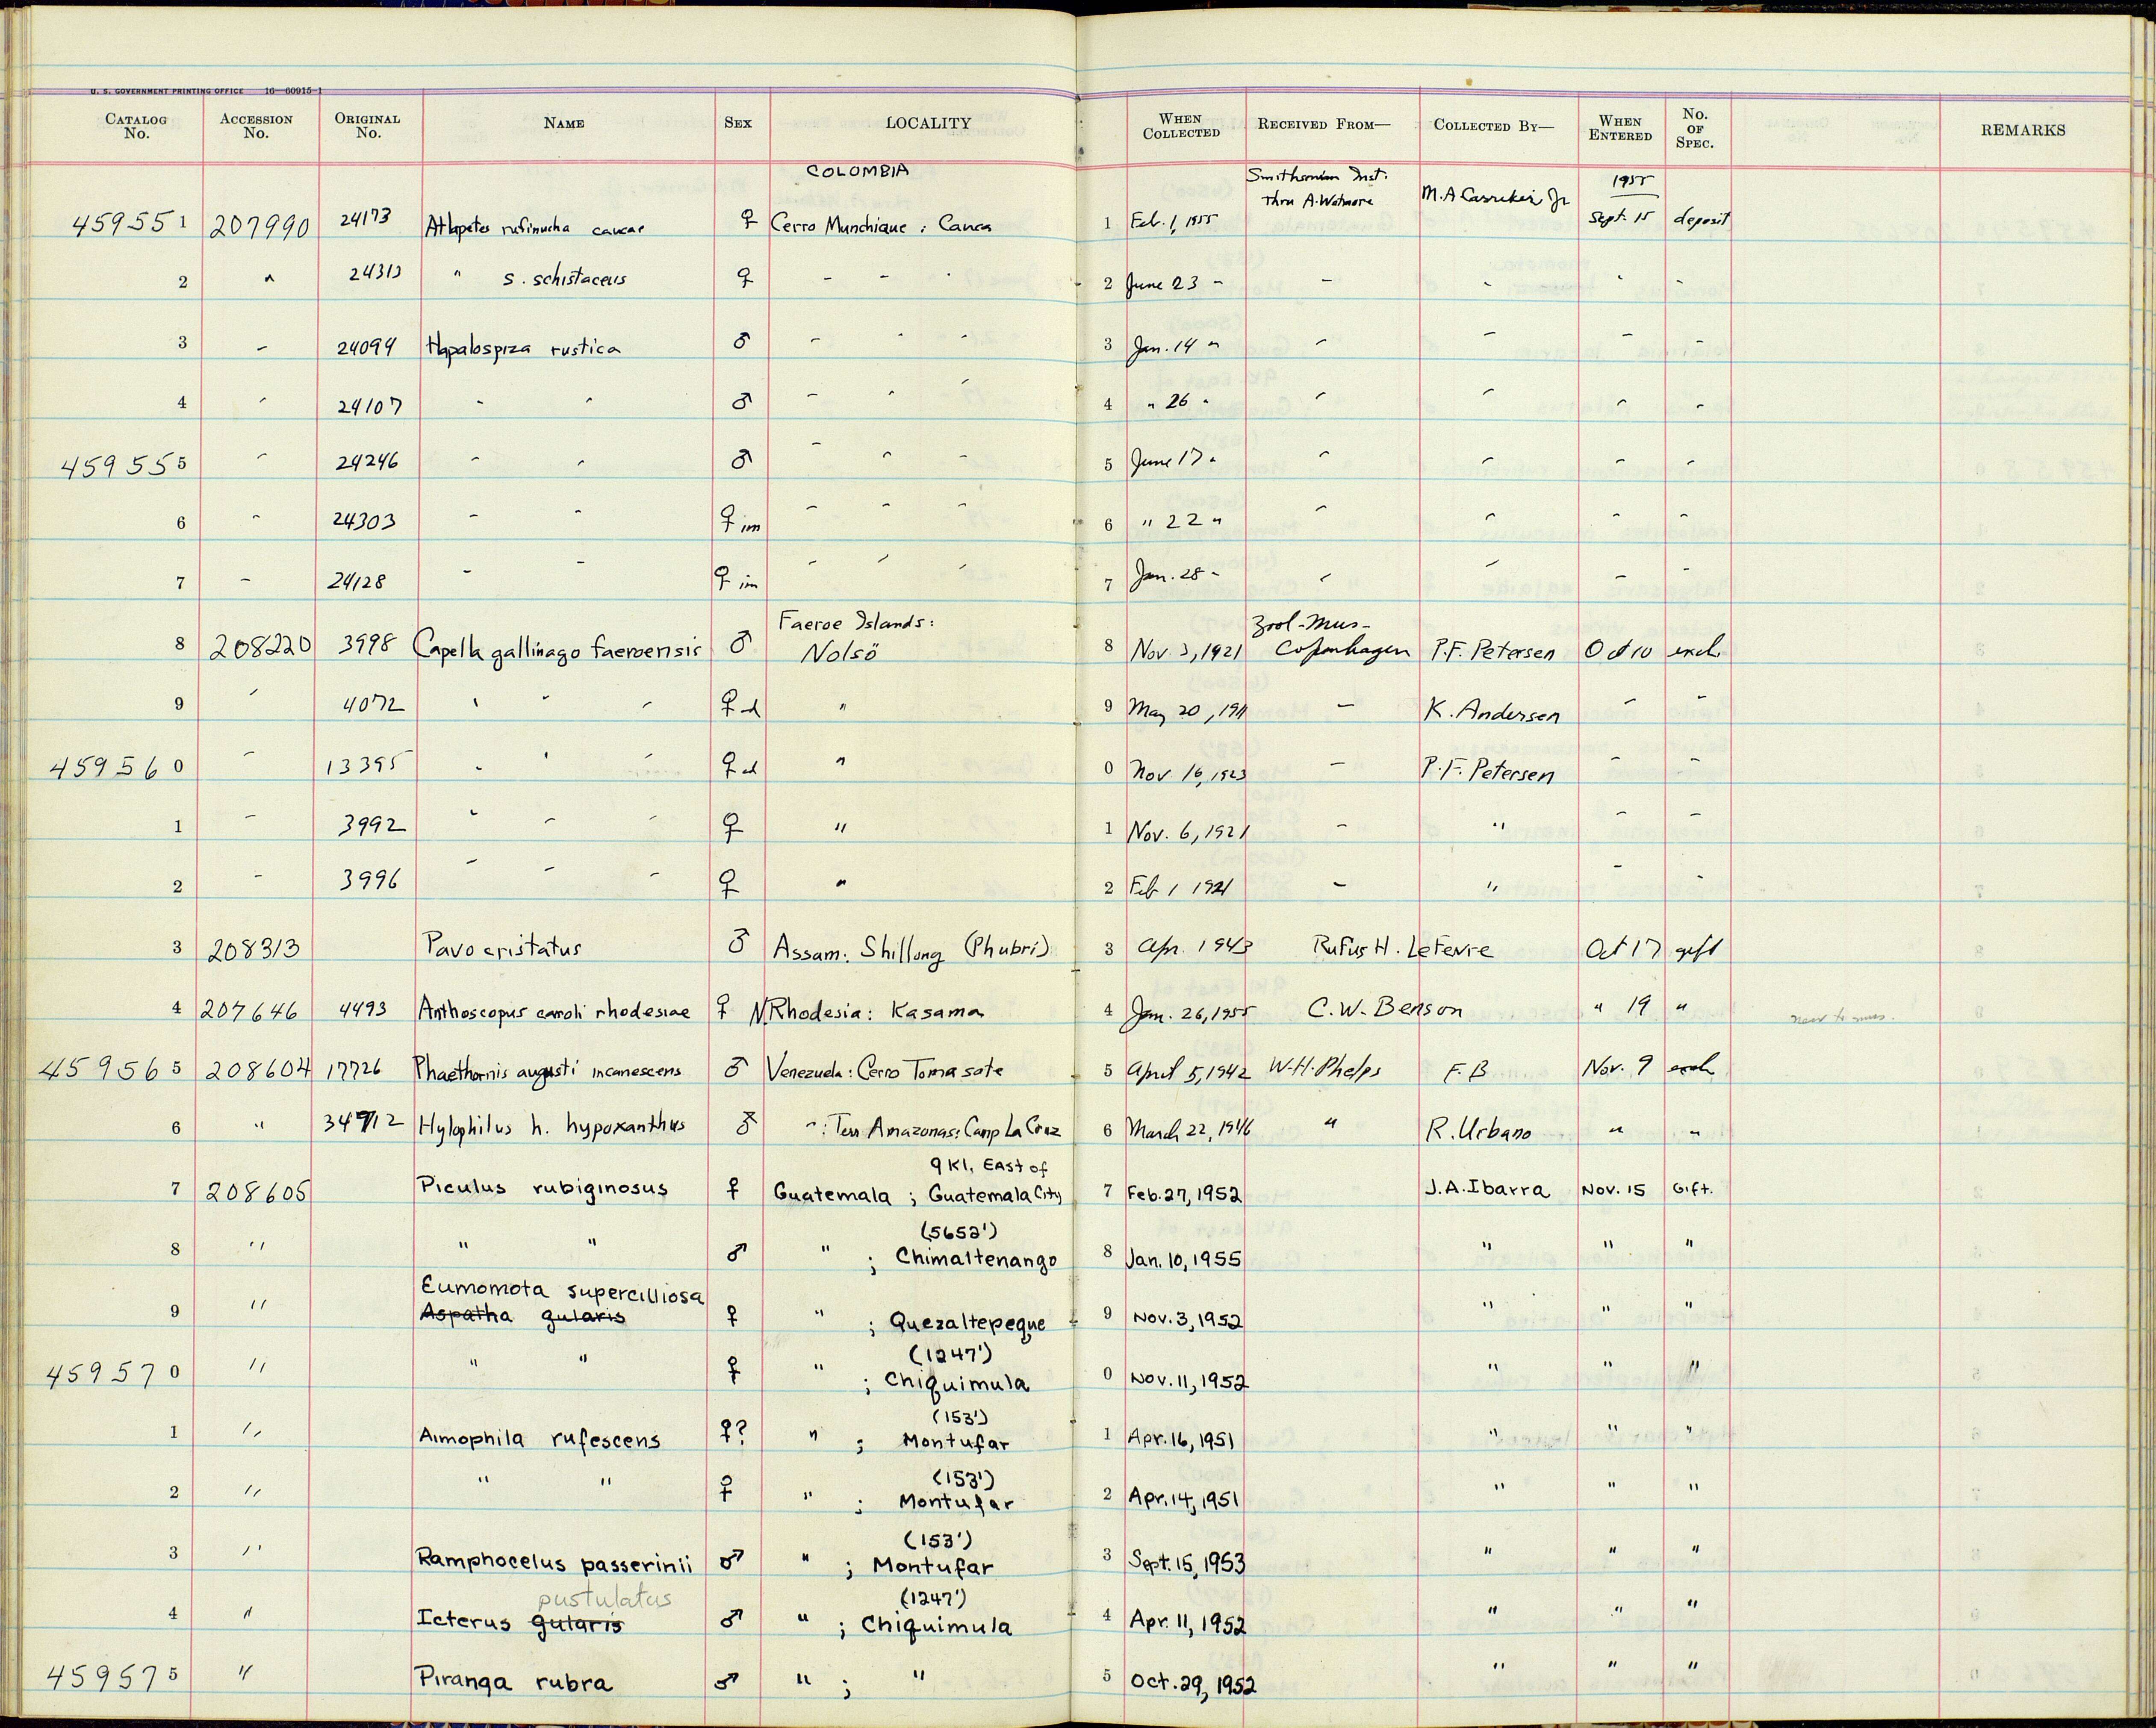 U. S. GOVERNMENT PRINTING OFFICE 16—60915-1
CATALOG No. ACCESSION No. ORIGINAL No. NAME SEX LOCALITY WHEN COLLECTED RECEIVED FROM— COLLECTED BY— WHEN ENTERED No. OF SPEC. REMARKS
COLOMBIA Smithsonian Inst. thru A. Wetmore 1955
459551 207990 24173 Atlapetes rufinucha caucae ♀ Cerro Munchique; Cauca 1 Feb. 1, 1955 M.A Carriker Jr Sept. 15 deposit
2 " 24313 " s. schistaceus ♀ " " " 2 June 23 " " " " "
3 " 24094 Hapalospiza rustica ♂ " " " 3 Jan. 14 " " " " "
4 " 24107 " " ♂ " " " 4 " 26 " " " " "
459555 " 24246 " " ♂ " " " 5 June 17 " " " " "
6 " 24303 " " ♀ im " " " 6 " 22 " " " " "
7 " 24128 " " ♀ im " " " 7 Jan. 28 " " " " "
Faeroe Islands: Zool-Mus-
8 208220 3998 Capella gallinago faeroensis ♂ Nolsö 8 Nov 3, 1921 Copenhagen P.F. Petersen Oct 10 exch.
9 " 4072 " " " ♀ad " 9 May 20, 1911 " K. Andersen " "
459560 " 13395 " " " ♀ad " 0 Nov 16, 1923 " P.F. Petersen " "
1 " 3992 " " " ♀ " 1 Nov. 6, 1921 " " " "
2 " 3996 " " " ♀ " 2 Feb 1 1921 " " " "
3 208313 Pavo cristatus ♂ Assam: Shillong (Phubri) 3 Apr. 1943 Rufus H. LeFevre Oct 17 gift
4 207646 4493 Anthoscopus caroli rhodesiae ♀ N.Rhodesia: Kasama 4 Jan. 26, 1955 C.W. Benson " 19 " new to mus.
459565 208604 17726 Phaethornis augusti incanescens ♂ Venezuela: Cerro Tomasote 5 April 5, 1942 W.H. Phelps F. B Nov. 9 exch
6 " 34712 Hylophilus h. hypoxanthus ♂ ": Terr Amazonas: Camp La Cruz 6 March 22, 1946 " R. Urbano " "
9 Kl. East of
7 208605 Piculus rubiginosus ♀ Guatemala ; Guatemala City 7 Feb. 27, 1952 J.A. Ibarra Nov. 15 Gift.
(5653')
8 " " " ♂ " ; Chimaltenango 8 Jan. 10, 1955 " " "
Eumomota superciliosa
9 " Aspatha gularis ♀ " ; Quezaltepeque 9 Nov. 3, 1952 " " "
(1247')
459570 " " " ♀ " ; Chiquimula 0 Nov. 11, 1952 " " "
(153')
1 " Aimophila rufescens ♀? " ; Montufar 1 Apr. 16, 1951 " " "
(153')
2 " " " ♀ " ; Montufar 2 Apr. 14, 1951 " " "
(153')
3 " Ramphocelus passerinii ♂ " ; Montufar 3 Sept. 15, 1953 " " "
pustulatus (1247')
4 " Icterus gularis ♂ " ; Chiquimula 4 Apr. 11, 1952 " " "
459575 " Piranga rubra ♂ " ; " 5 Oct. 29, 1952 " " "